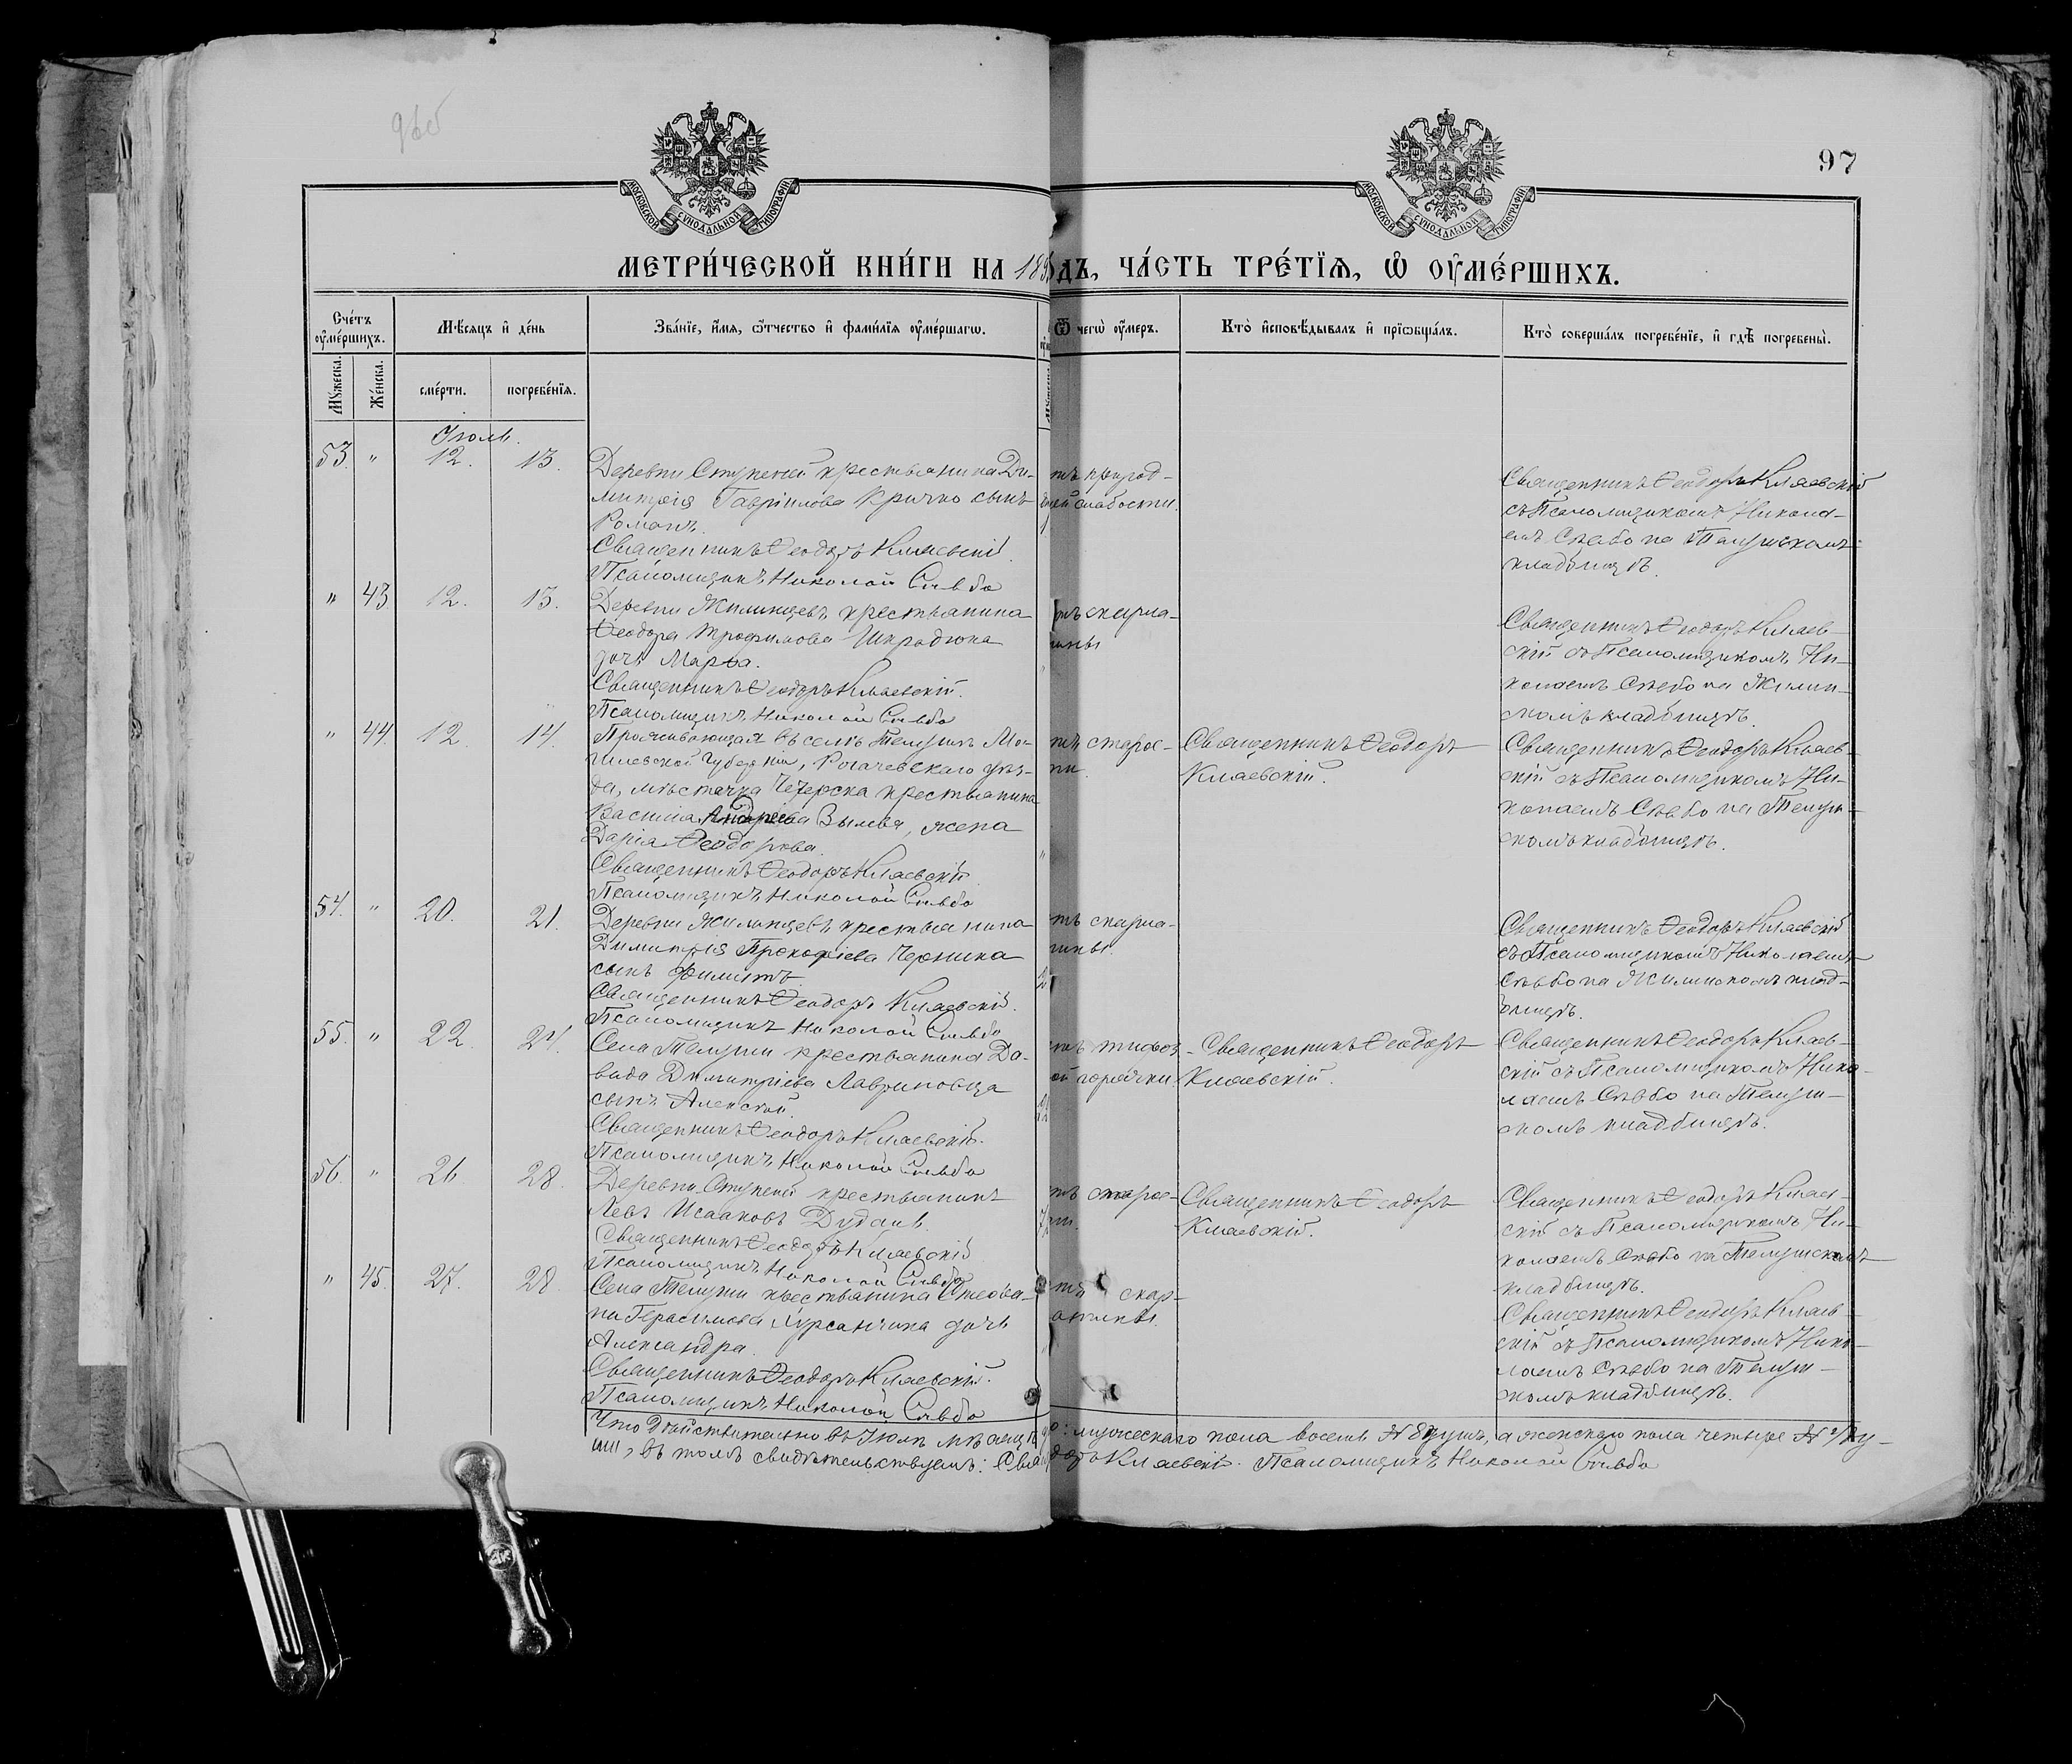 96об
97
МОСКОВСКОЙ СѴНОДАЛЬНОЙ ТИПОГРАФІИ
МОСКОВСКОЙ СѴНОДАЛЬНОЙ ТИПОГРАФІИ
МЕТРИ́ЧЕСКОЙ КНИ́ГИ НА 189
ДЪ, ЧА́СТЬ ТРЕ́ТЇѦ, Ѡ҆ ОУ҆МЕ́РШИХЪ.
Сче́тъ оу҆ме́ршихъ.
Мѣ́сяцъ и҆ де́нь
Зва́нїе, и҆́мя, ѻ҆́тчество и҆ фами́лїя оу҆ме́ршагѡ.
Ѿ чегѡ̀ оу҆́меръ.
Кто̀ и҆сповѣ́дывалъ и҆ прїѡбща́лъ.
Кто̀ соверша́лъ погребе́нїе, и҆ гдѣ̀ погребены̀.
Мꙋ́жеска.
Же́нска.
сме́рти.
погребе́нїя.
Іюль.
53. " 12. 13.
Деревни Ступеней крестьянина Ди-
митрія Гавріилова Кричко сынъ
Романъ.
Священникъ Ѳеодоръ Кляевскій.
Псаломщикъ Николай Сѣвбо
тъ природ-
ной слабости.
Священникъ Ѳеодоръ Кляевскій
съ Псаломщикомъ Никола-
емъ Сѣвбо на Телушскомъ
кладбищѣ.
" 43 12. 13.
Деревни Жилинцевъ крестьянина
Ѳеодора Трофимова Шкрадюка
дочь Марѳа.
Священникъ Ѳеодоръ Кляевскій.
Псаломщикъ Николай Сѣвбо
отъ скарла-
тины
Священникъ Ѳеодоръ Кляев-
скій съ Псаломщикомъ Ни-
колаемъ Сѣвбо на Жилин-
скомъ кладбищѣ.
" 44. 12. 14.
Проживающая въ селѣ Телушѣ Мо-
гилевской Губерніи, Рогачевскаго уѣз-
да, мѣстечка Чечерска крестьянина
Василія Андреева Зылева, жена
Дарія Ѳеодорова.
Священникъ Ѳеодоръ Кляевскій
Псаломщикъ Николай Сѣвбо
тъ старос-
ти.
Священникъ Ѳеодоръ
Кляевскій.
Священникъ Ѳеодоръ Кляев-
скій съ Псаломщикомъ Ни-
колаемъ Сѣвбо на Телуш-
скомъ кладбищѣ.
54. " 20. 21.
Деревни Жилинцевъ крестьянина
Димитрія Прокофіева Черника
сынъ Филиппъ.
Священникъ Ѳеодоръ Кляевскій.
Псаломщикъ Николай Сѣвбо
тъ скарла-
тины.
Священникъ Ѳеодоръ Кляевскій
съ Псаломщикомъ Николаемъ
Сѣвбо на Жилинскомъ клад-
бищѣ.
55. " 22. 24.
Села Телуши крестьянина Да-
вида Димитріева Лавриновца
сынъ Алексѣй.
Священникъ Ѳеодоръ Кляевскій.
Псаломщикъ Николай Сѣвбо
тъ тифоз-
ой горячки.
Священникъ Ѳеодоръ
Кляевскій.
Священникъ Ѳеодоръ Кляев-
скій съ Псаломщикомъ Нико-
лаемъ Сѣвбо на Телуш-
скомъ кладбищѣ.
56. " 26. 28.
Деревни Ступеней крестьянинъ
Левъ Исааковъ Дудаль.
Священникъ Ѳеодоръ Кляевскій
Псаломщикъ Николай Сѣвбо
тъ старос-
ти.
Священникъ Ѳеодоръ
Кляевскій.
Священникъ Ѳеодоръ Кляев-
скій съ Псаломщикомъ Ни-
колаемъ Сѣвбо на Телушскомъ
кладбищѣ.
" 45. 27. 28.
Села Телуши крестьянина Стефа-
на Герасимова Хурсанчика дочь
Александра.
Священникъ Ѳеодоръ Кляевскій.
Псаломщикъ Николай Сѣвбо
тъ скар-
латины.
Священникъ Ѳеодоръ Кляев-
скій съ Псаломщикомъ Нико-
лаемъ Сѣвбо на Телуш-
скомъ кладбищѣ.
Что дѣйствительно въ Іюлѣ мѣсяцѣ
о: мужескаго пола восемь № 8 душъ, а женскаго пола четыре № 4 ду-
ши, въ томъ свидѣтельствуемъ: Свя
доръ Кляевскій. Псаломщикъ Николай Сѣвбо